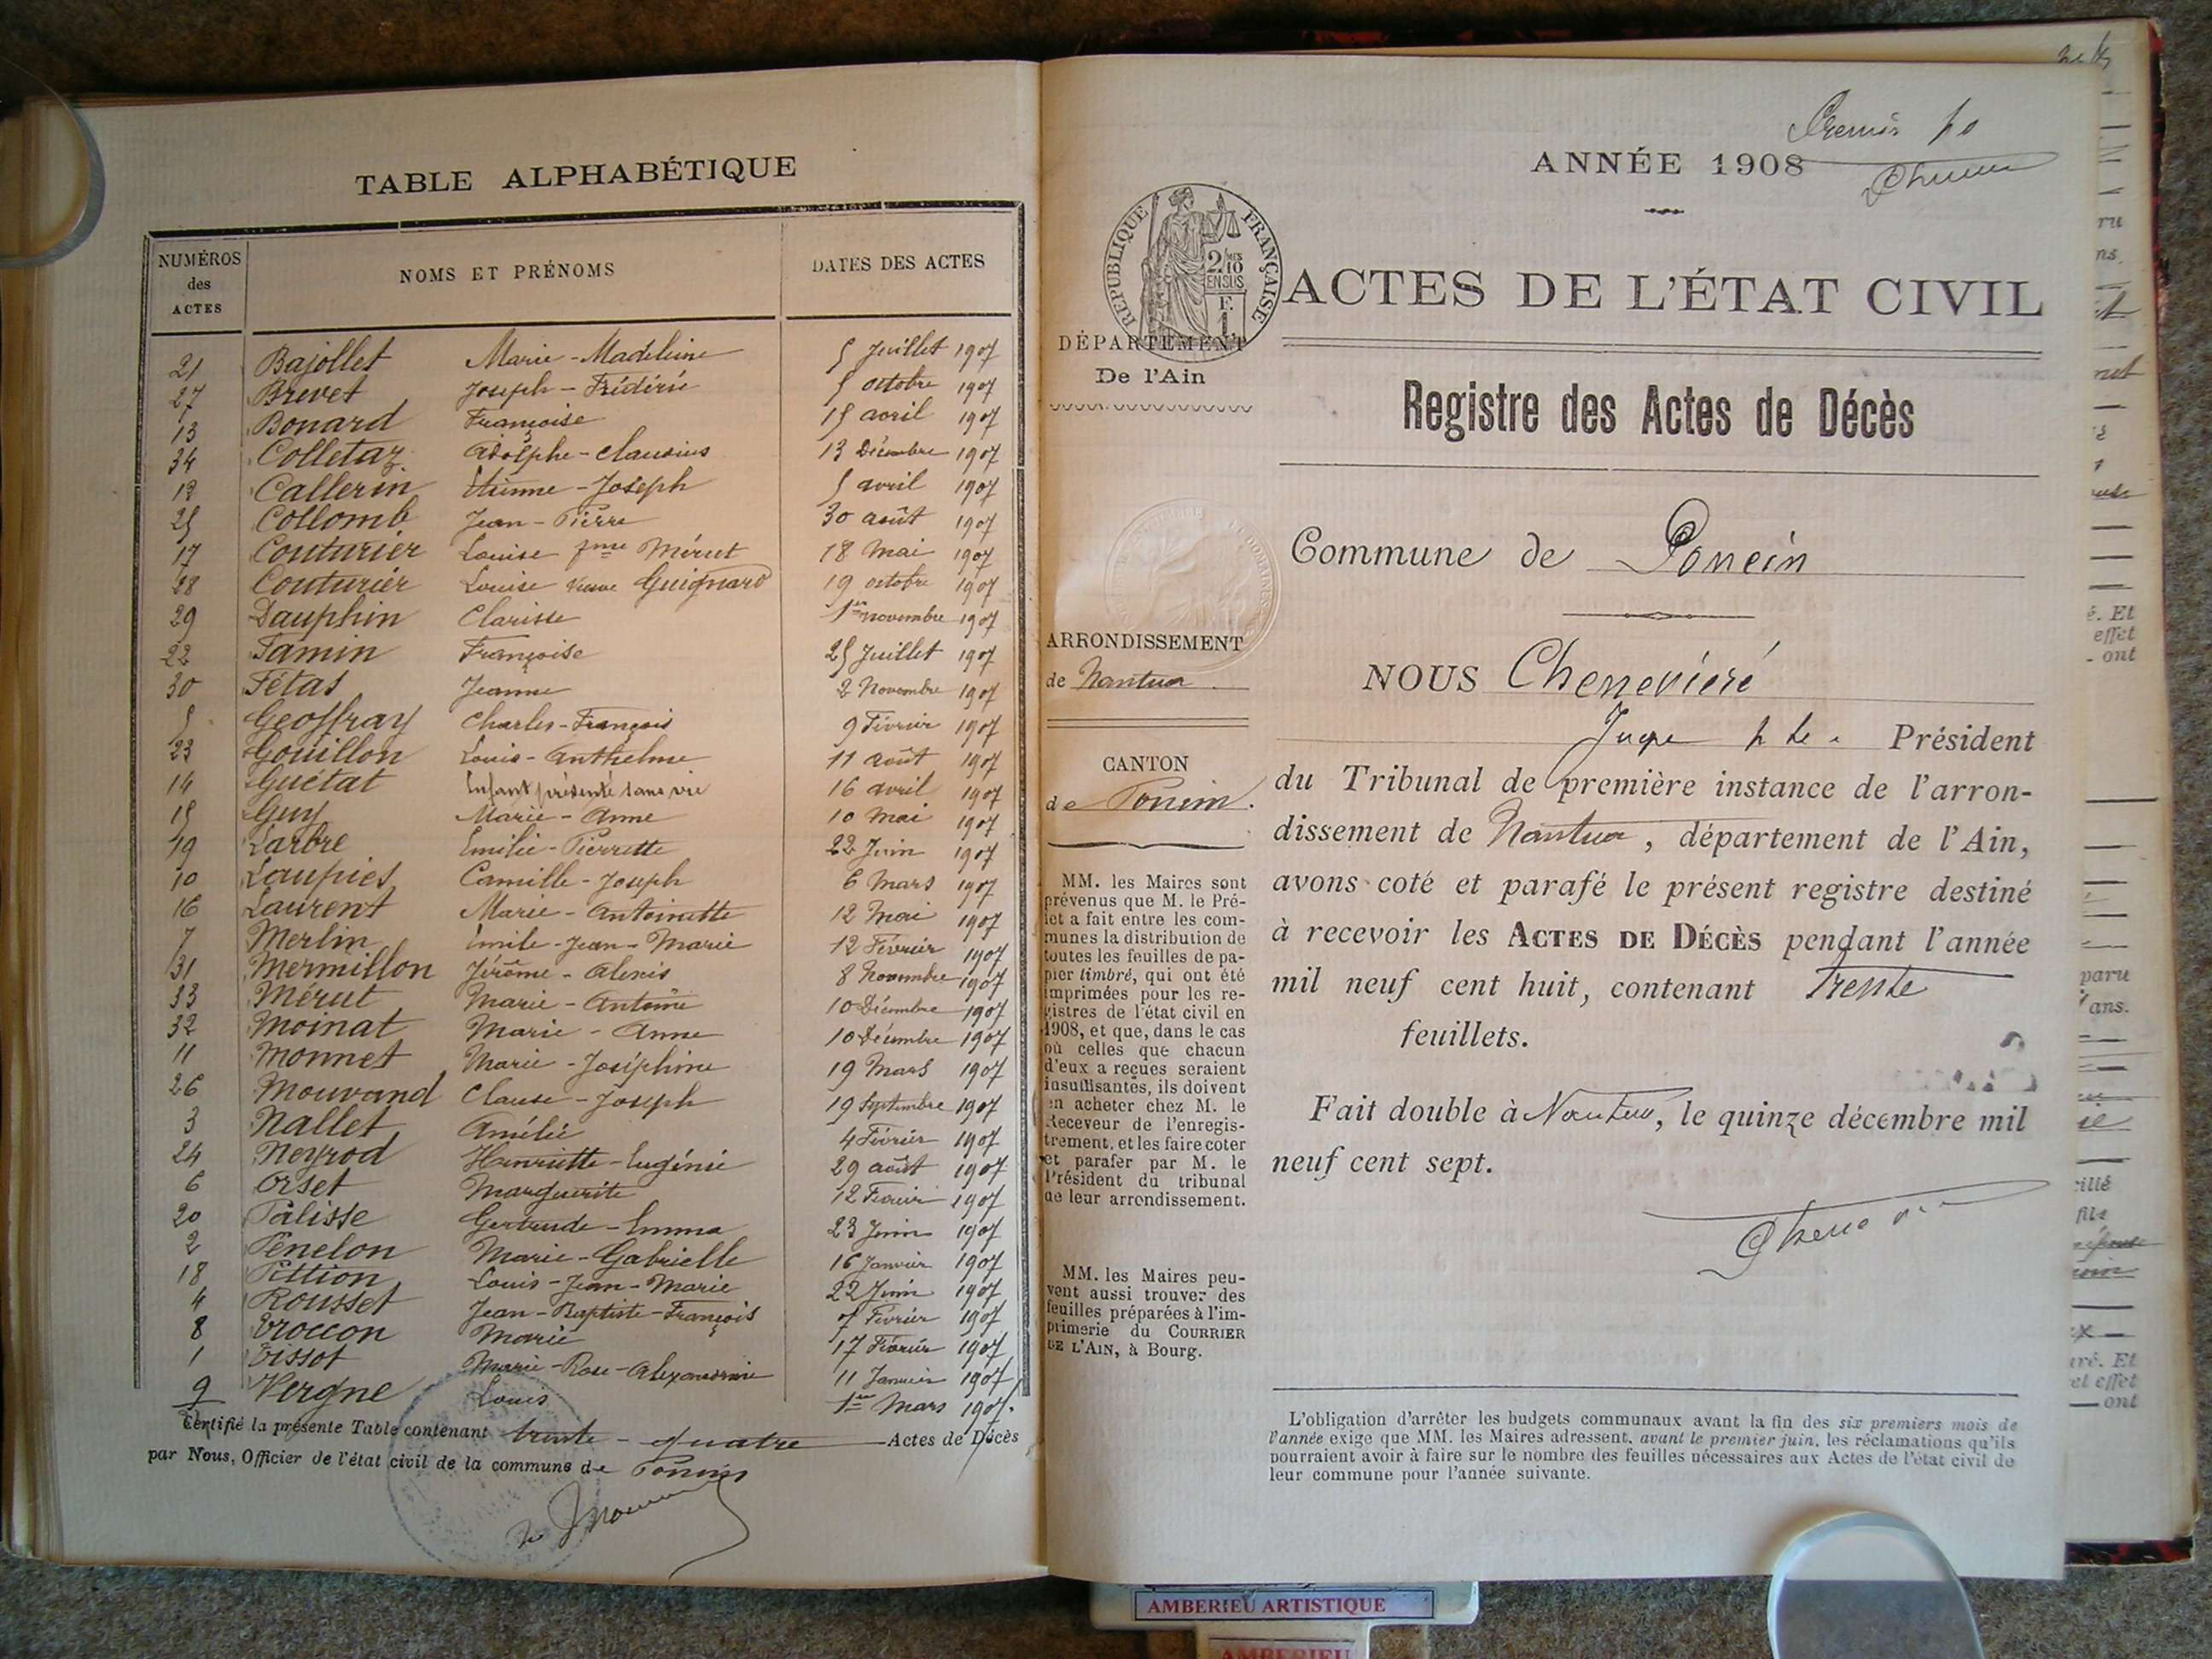 TABLE ALPHABÉTIQUE
NUMÉROS des ACTES
NOMS ET PRÉNOMS
DATES DES ACTES
21 Bajollet Marie-Madeleine 5 Juillet 1907
27 Brevet Joseph-Frédéric 5 octobre 1907
13 Bonard Françoise 15 avril 1907
34 Colletaz Adolphe-Claudius 13 Décembre 1907
12 Callerin Etienne-Joseph 5 avril 1907
25 Collomb Jean-Pierre 30 août 1907
17 Couturier Louise fme Mérut 18 Mai 1907
28 Couturier Louise Veuve Guignard 19 octobre 1907
29 Dauphin Clarisse 1er novembre 1907
22 Famin Françoise 25 Juillet 1907
30 Fétas Jeanne 2 Novembre 1907
5 Geoffray Charles-François 9 Février 1907
23 Gouillon Louis-Anthelme 11 août 1907
14 Guétat Enfant présenté sans vie 16 avril 1907
15 Guy Marie-Anne 10 Mai 1907
19 Larbre Emilie-Pierrette 22 Juin 1907
10 Laupies Camille-Joseph 6 Mars 1907
16 Laurent Marie-Antoinette 12 Mai 1907
7 Merlin Emile-Jean-Marie 12 Février 1907
31 Mermillon Jérôme-Alexis 8 Novembre 1907
33 Mérut Marie-Antoine 10 Décembre 1907
32 Moinat Marie-Anne 10 Décembre 1907
11 Monnet Marie-Joséphine 19 Mars 1907
26 Mouvand Claude-Joseph 19 Septembre 1907
3 Nallet Amélie 4 Février 1907
24 Neyrod Henriette-Eugénie 29 août 1907
6 Orset Marguerite 12 Février 1907
20 Pâlisse Gertrude-Emma 23 Juin 1907
2 Penelon Marie-Gabrielle 16 Janvier 1907
18 Pittion Louis-Jean-Marie 22 Juin 1907
4 Rousset Jean-Baptiste-François 7 Février 1907
8 Troccon Marie 17 Février 1907
1 Tissot Marie-Rose-Alexandrine 11 Janvier 1907
9 Vergne Louis 1er Mars 1907.
Certifié la présente Table contenant trente-quatre Actes de Décès
par Nous, Officier de l'état civil de la commune de Poncin
Premier
ANNÉE 1908
RÉPUBLIQUE FRANÇAISE
2/10MES
EN SUS
F.
1.
ACTES DE L'ÉTAT CIVIL
DÉPARTEMENT
De l'Ain
Registre des Actes de Décès
Commune de Poncin
ARRONDISSEMENT
de Nantua
NOUS Chenevière
Juge Président
CANTON
de Poncin.
du Tribunal de première instance de l'arron-
dissement de Nantua, département de l'Ain,
avons coté et parafé le présent registre destiné
à recevoir les ACTES DE DÉCÈS pendant l'année
mil neuf cent huit, contenant Trente
feuillets.
Fait double à Nantua, le quinze décembre mil
neuf cent sept.
MM. les Maires sont
prévenus que M. le Pré-
fet a fait entre les com-
munes la distribution de
toutes les feuilles de pa-
pier timbré, qui ont été
imprimées pour les re-
gistres de l'état civil en
1908, et que, dans le cas
où celles que chacun
d'eux a reçues seraient
insuffisantes, ils doivent
en acheter chez M. le
Receveur de l'enregis-
trement, et les faire coter
et parafer par M. le
Président du tribunal
de leur arrondissement.
MM. les Maires peu-
vent aussi trouver des
feuilles préparées à l'im-
primerie du COURRIER
DE L'AIN, à Bourg.
L'obligation d'arrêter les budgets communaux avant la fin des six premiers mois de
l'année exige que MM. les Maires adressent, avant le premier juin, les réclamations qu'ils
pourraient avoir à faire sur le nombre des feuilles nécessaires aux Actes de l'état civil de
leur commune pour l'année suivante.
AMBERIEU ARTISTIQUE
AMBERIEU